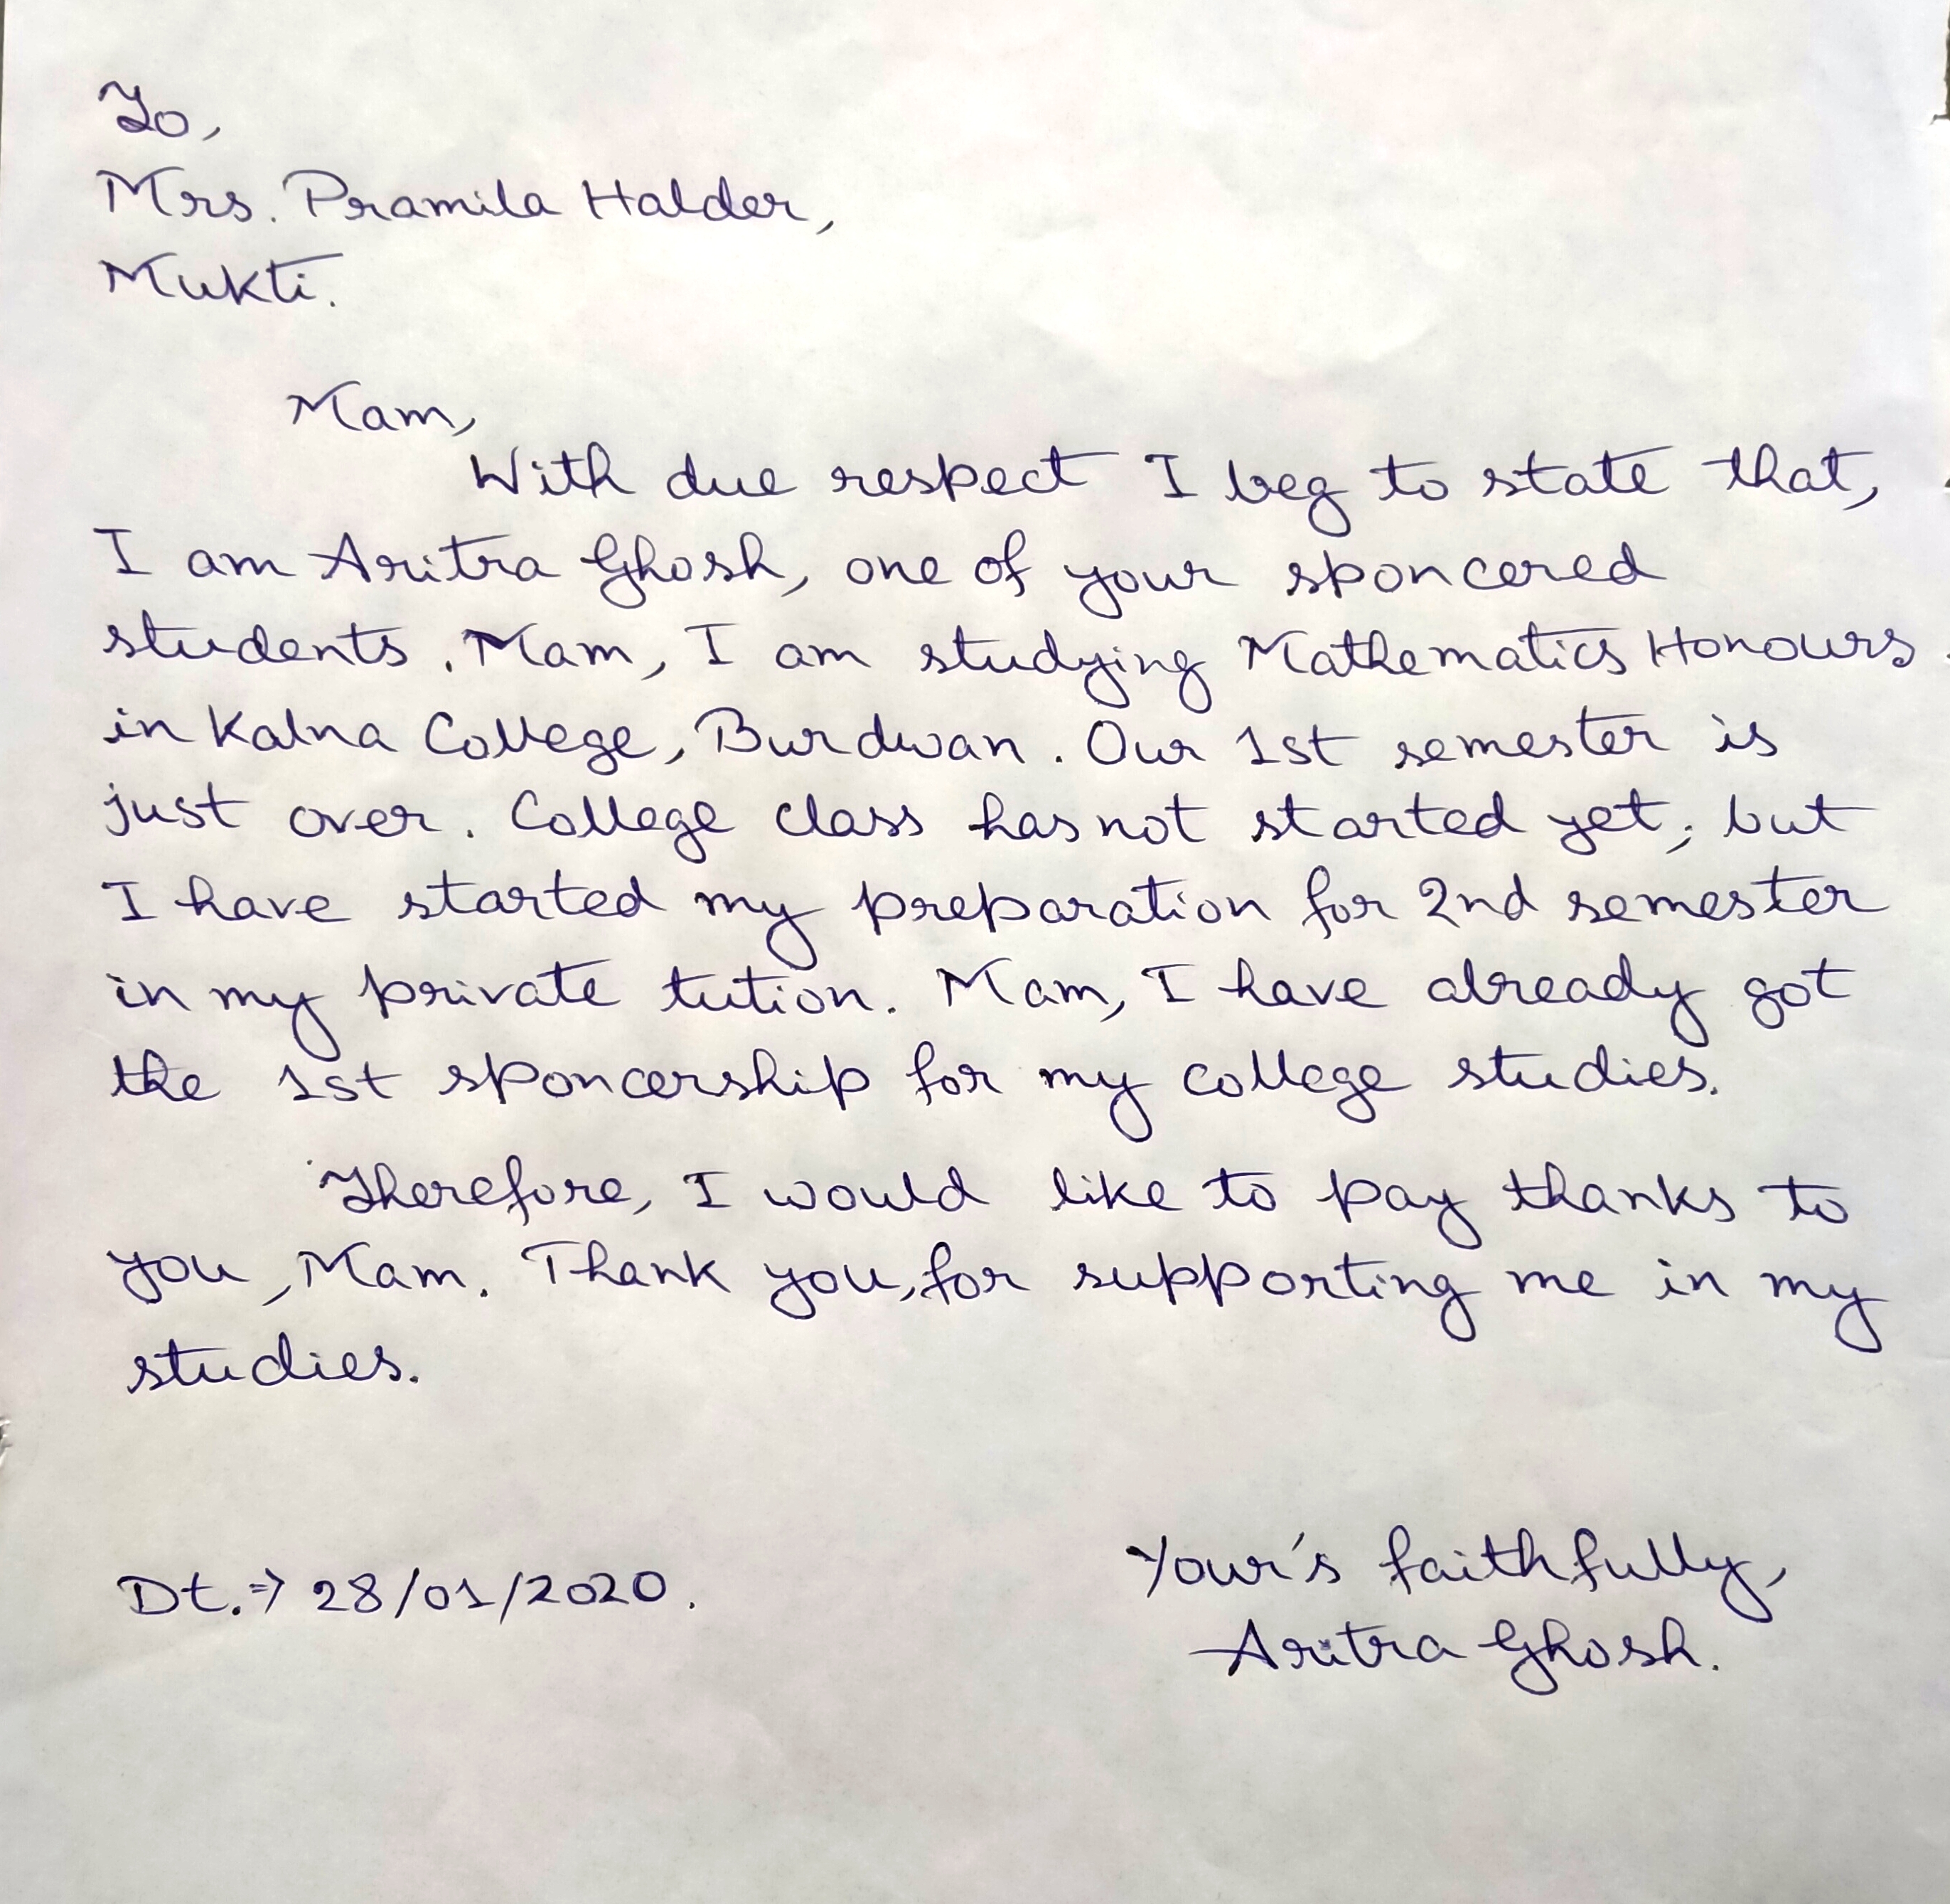 To,
Mrs. Pramila Halder,
Mukti.
Mam,
With due respect I beg to state that,
I am Aritra Ghosh, one of your sponcered
students. Mam, I am studying Mathematics Honours
in Kalna College, Burdwan. Our 1st semester is
just over. College class has not started yet, but
I have started my preparation for 2nd semester
in my private tution. Mam, I have already got
the 1st sponcership for my college studies.
Therefore, I would like to pay thanks to
you, Mam. Thank you, for supporting me in my
studies.
Your's faithfully,
Dt.⇒ 28/01/2020.
Aritra Ghosh.